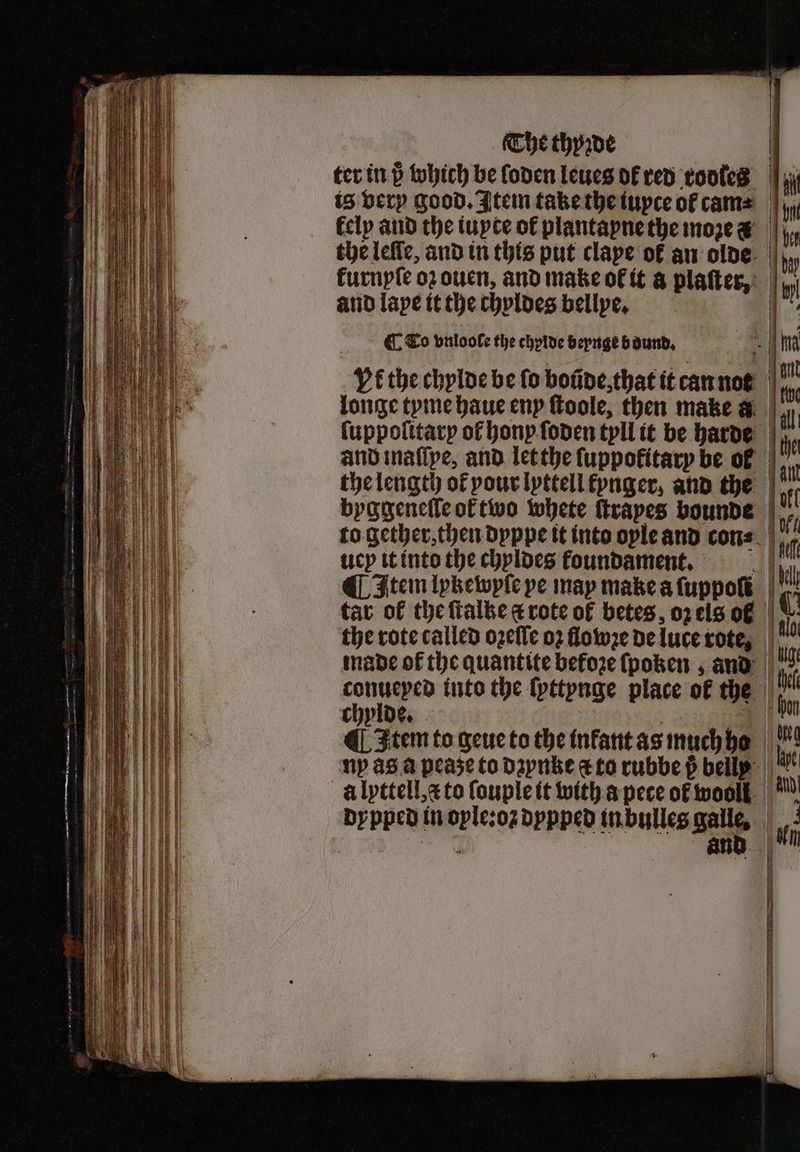 The thyrde
ter in þᵗ which be soden leues of red rooses
is very good. Item take the iuyce of cam=
fely and the iuyce of plantayne the more &
the lesse, and in this put claye of an olde
furnyse or ouen, and make of it a plaster,
and laye it the chyldes bellye.
¶ To vnloose the chylde beynge bound.
Yf the chylde be so boūde, that it can not
longe tyme haue eny stoole, then make a
suppositary of hony soden tyll it be harde
and massye, and let the suppositary be of
the length of your lyttell fynger, and the
byggenesse of two whete strayes bounde
to gether, then dyppe it into oyle and con=
uey it into the chyldes foundament.
¶ Item lykewyse ye may make a supposi
tar of the stalke & rote of betes, or els of
the rote called oresse or flowre de luce rote,
made of the quantite before spoken, and
conueyed into the syttynge place of the
chylde.
¶ Item to geue to the infant as much ho
ny as a pease to drynke & to rubbe þᵉ belly
a lyttell, & to souple it with a pece of wooll
dypped in oyle: or dypped in bulles galle,
and